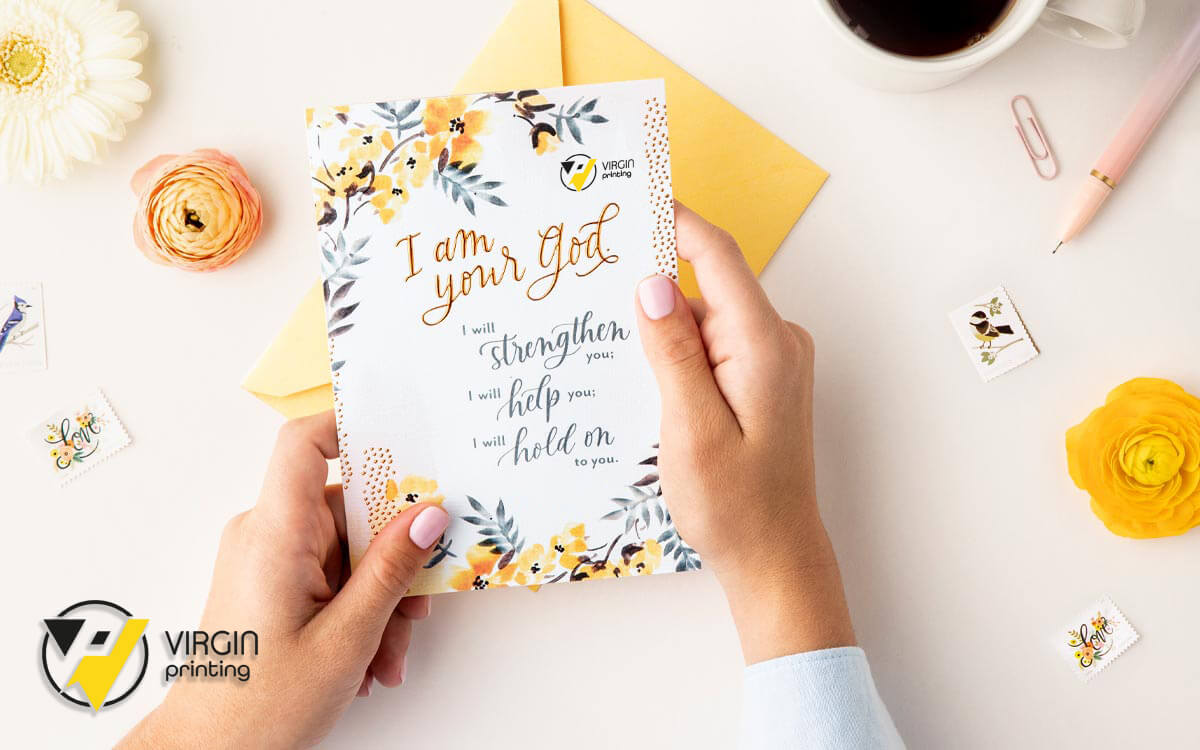 VIRGIN
printing
I am
your God.
I will
strengthen
you;
I will help you;
I will hold on
to you.
love
love
VIRGIN
printing